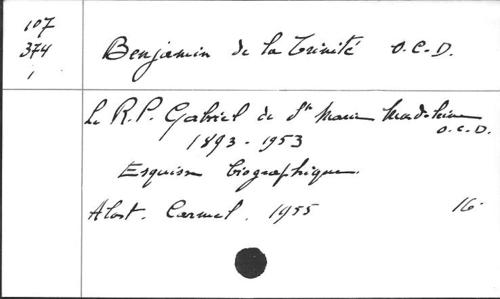 107
374
1
Benjamin de la Trinité O.C.D.
Le R.P. Gabriel de Ste Marie Madeleine O.C.D.
1893-1953
Esquisse biographique.
Alost. Carmel. 1955 16.